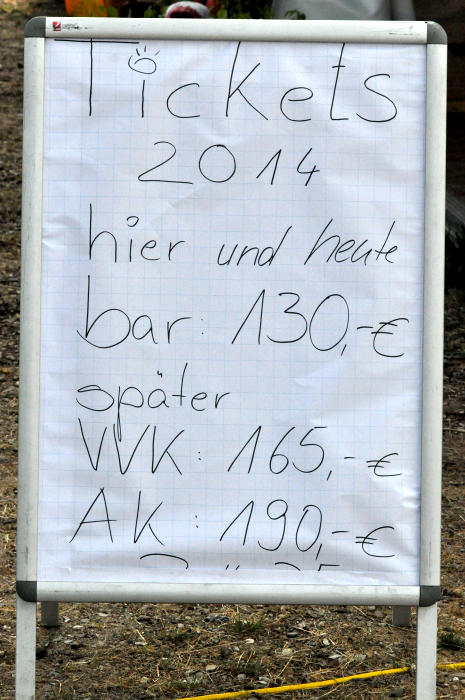 Tickets
2014
hier und heute
bar: 130,-€
später
VVK: 165,-€
AK: 190,-€